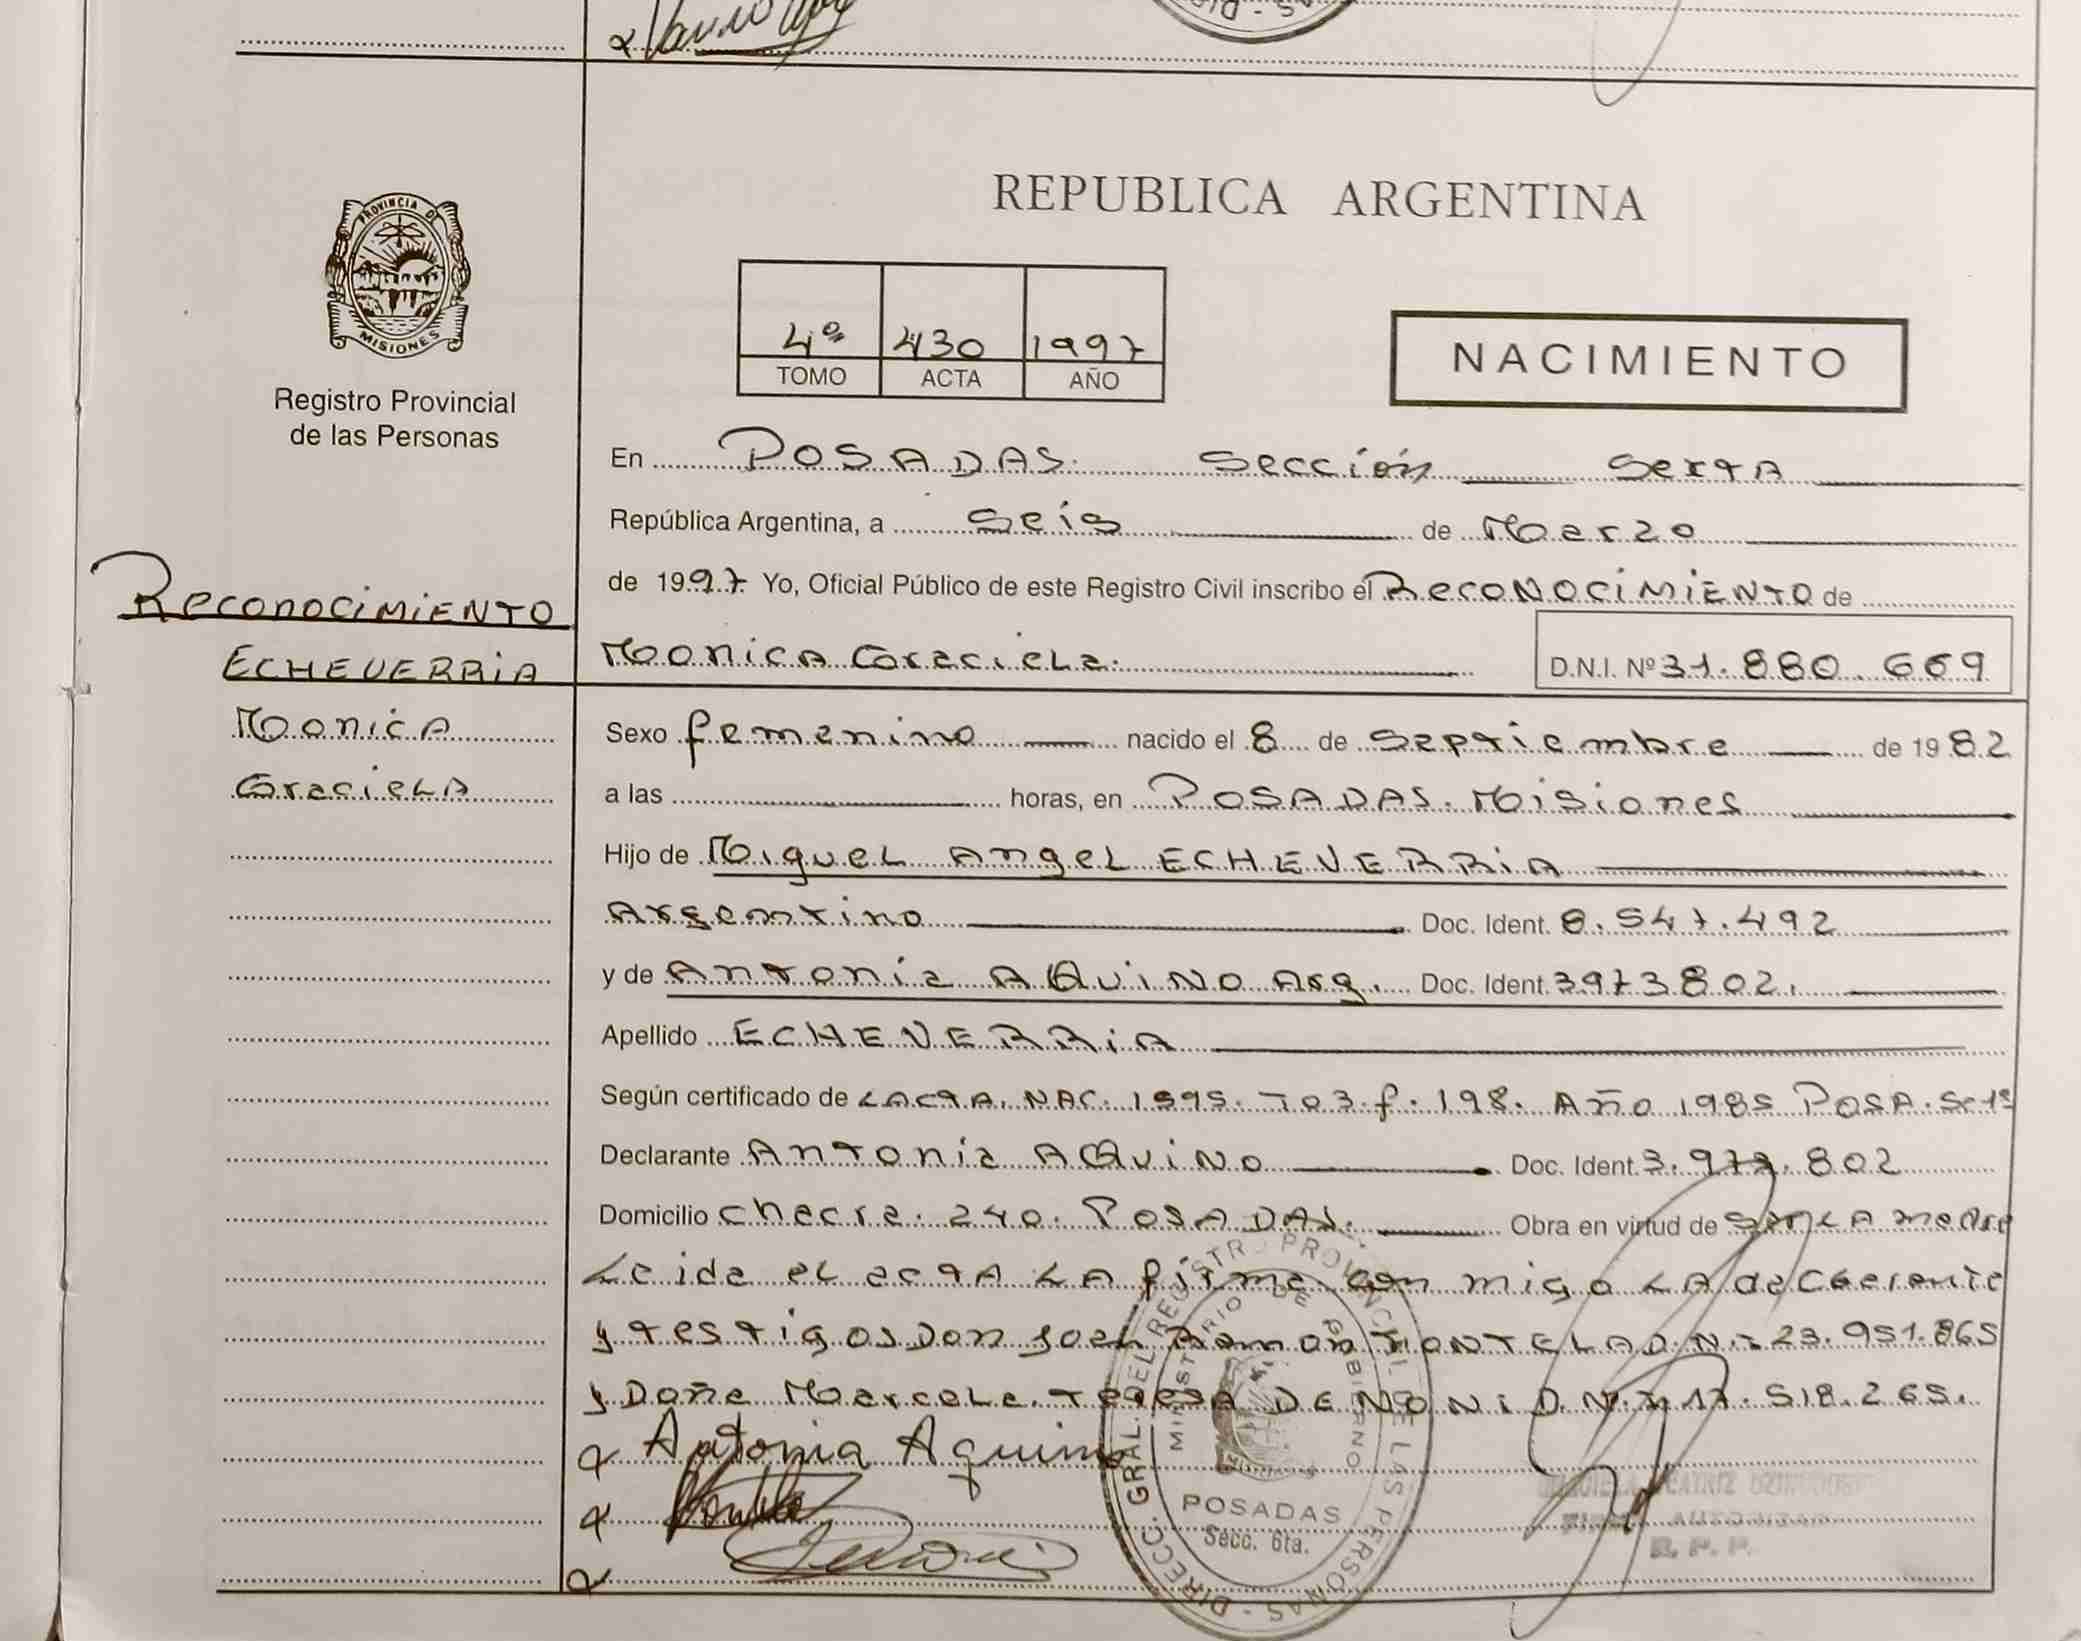 REPUBLICA ARGENTINA
PROVINCIA DE
MISIONES
Registro Provincial
de las Personas
4º 430 1997
TOMO ACTA AÑO
NACIMIENTO
En POSADAS. Sección Sexta
República Argentina, a Seis de Marzo
de 1997. Yo, Oficial Público de este Registro Civil inscribo el Reconocimiento de
Monica Graciela. D.N.I. Nº 31.880.669
Reconocimiento
ECHEVERRIA
Monica
Graciela
Sexo femenino nacido el 8 de Septiembre de 1982
a las horas, en POSADAS. Misiones
Hijo de Miguel Angel ECHEVERRIA
Argentino Doc. Ident. 8.547.492
y de Antonia AQUINO Arg. Doc. Ident. 3973802.
Apellido ECHEVERRIA
Según certificado de L.Acta. NAC. 1595. To3. f. 198. Año 1985 POSA. Sc 1ª
Declarante Antonia AQUINO Doc. Ident. 3.973.802
Domicilio Chacra. 240. POSADAS. Obra en virtud de Ser LA madre
Leida el acta LA firma con migo LA
y testigos Don Ramon D.N.I 23.951.865
y Doña Marcela. Teresa DENONI D.N.I 17.518.265.
Antonia Aquino
DIRECC. GRAL. DEL REGISTRO PROVINCIAL DE LAS PERSONAS
MINISTERIO DE GOBIERNO
POSADAS
Secc. 6ta.
R. P. P.